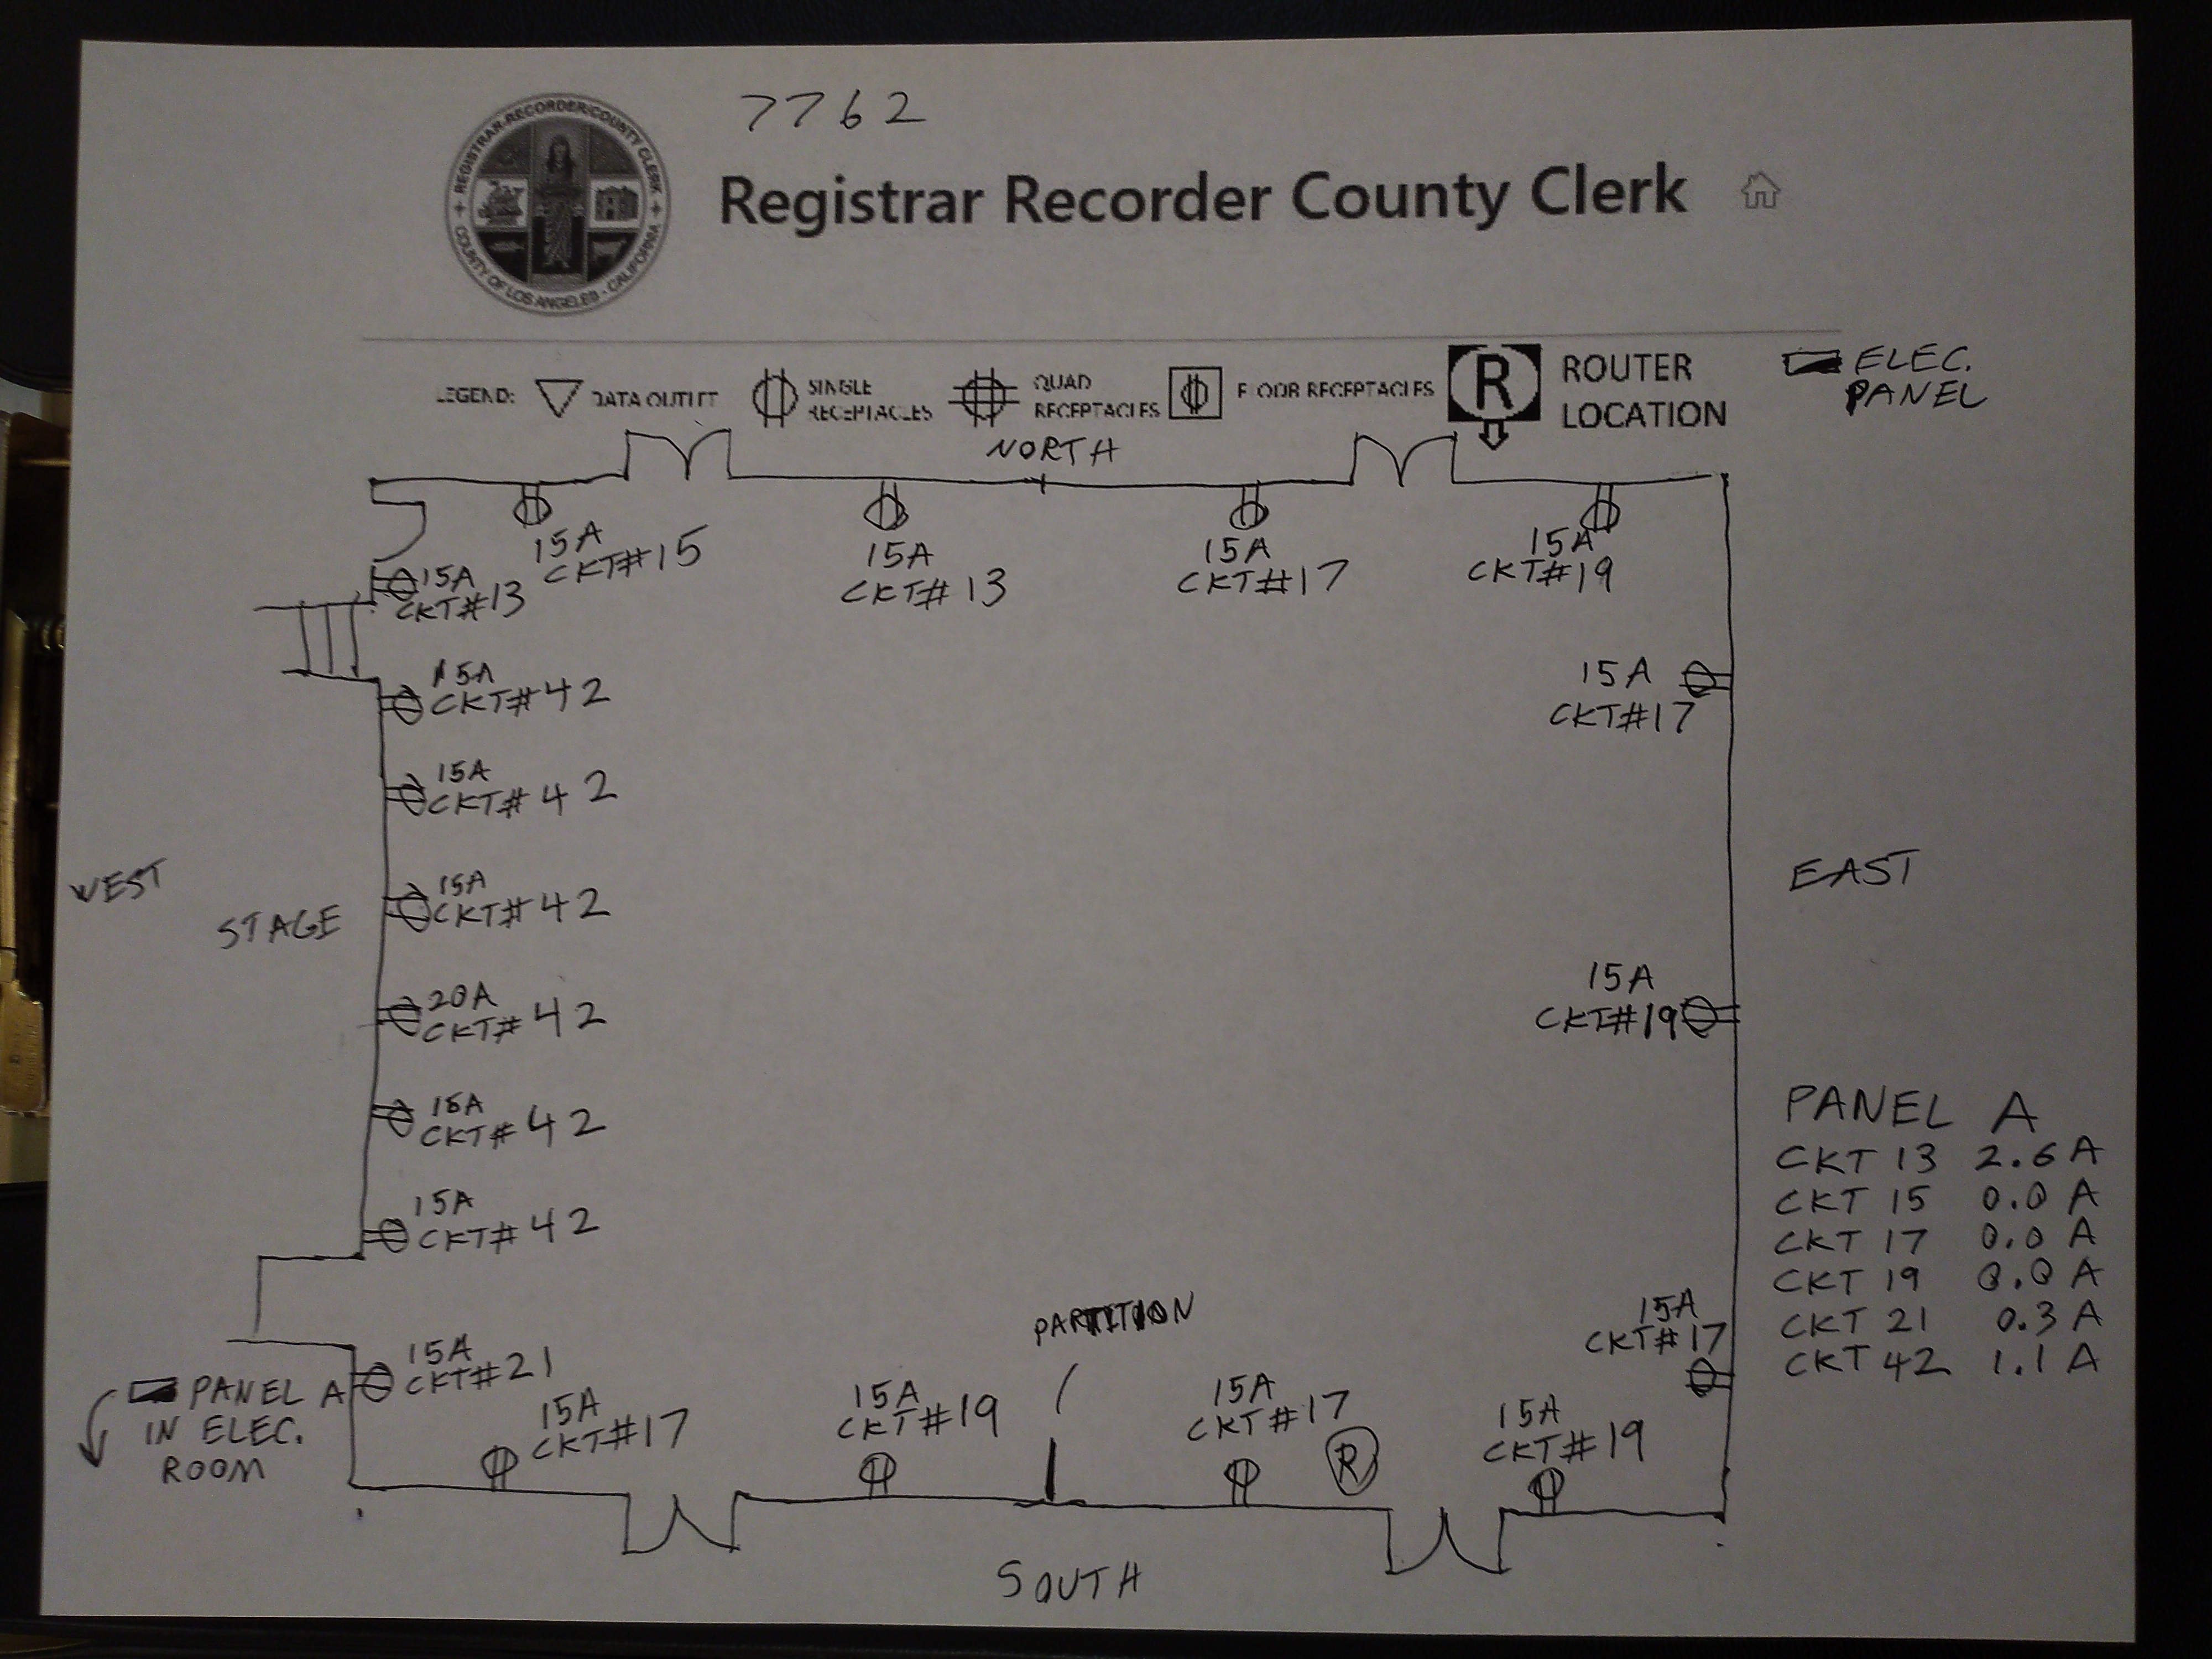 7762
REGISTRAR-RECORDER/COUNTY CLERK
COUNTY OF LOS ANGELES - CALIFORNIA
Registrar Recorder County Clerk
LEGEND:
DATA OUTLET
SINGLE
RECEPTACLES
QUAD
RECEPTACLES
FLOOR RECEPTACLES
R
ROUTER
LOCATION
ELEC.
PANEL
NORTH
15A
CKT#15
15A
CKT#13
15A
CKT#17
15A
CKT#19
15A
CKT#13
15A
CKT#42
15A
CKT#17
15A
CKT#42
WEST
STAGE
15A
CKT#42
EAST
20A
CKT#42
15A
CKT#19
15A
CKT#42
15A
CKT#42
PANEL A
CKT 13 2.6 A
CKT 15 0.0 A
CKT 17 0.0 A
CKT 19 0.0 A
CKT 21 0.3 A
CKT 42 1.1 A
PARTITION
15A
CKT#17
PANEL A
IN ELEC.
ROOM
15A
CKT#21
15A
CKT#17
15A
CKT#19
15A
CKT#17
R
15A
CKT#19
SOUTH